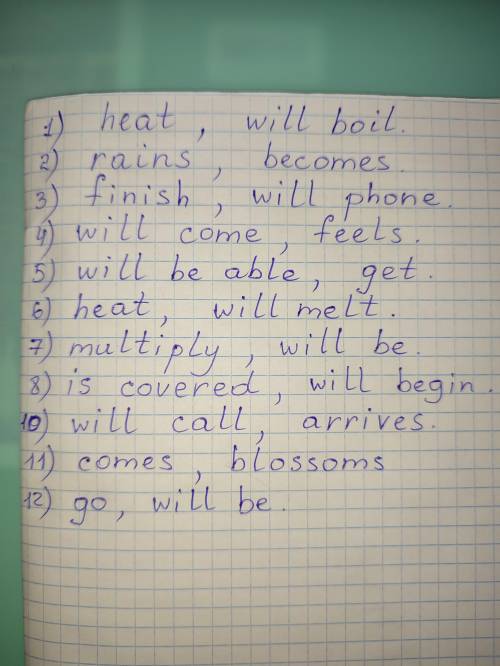 1) heat, will boil.
2) rains, becomes.
3) finish, will phone.
4) will come, feels.
5) will be able, get.
6) heat, will melt.
7) multiply, will be.
8) is covered, will begin.
10) will call, arrives.
11) comes, blossoms
12) go, will be.